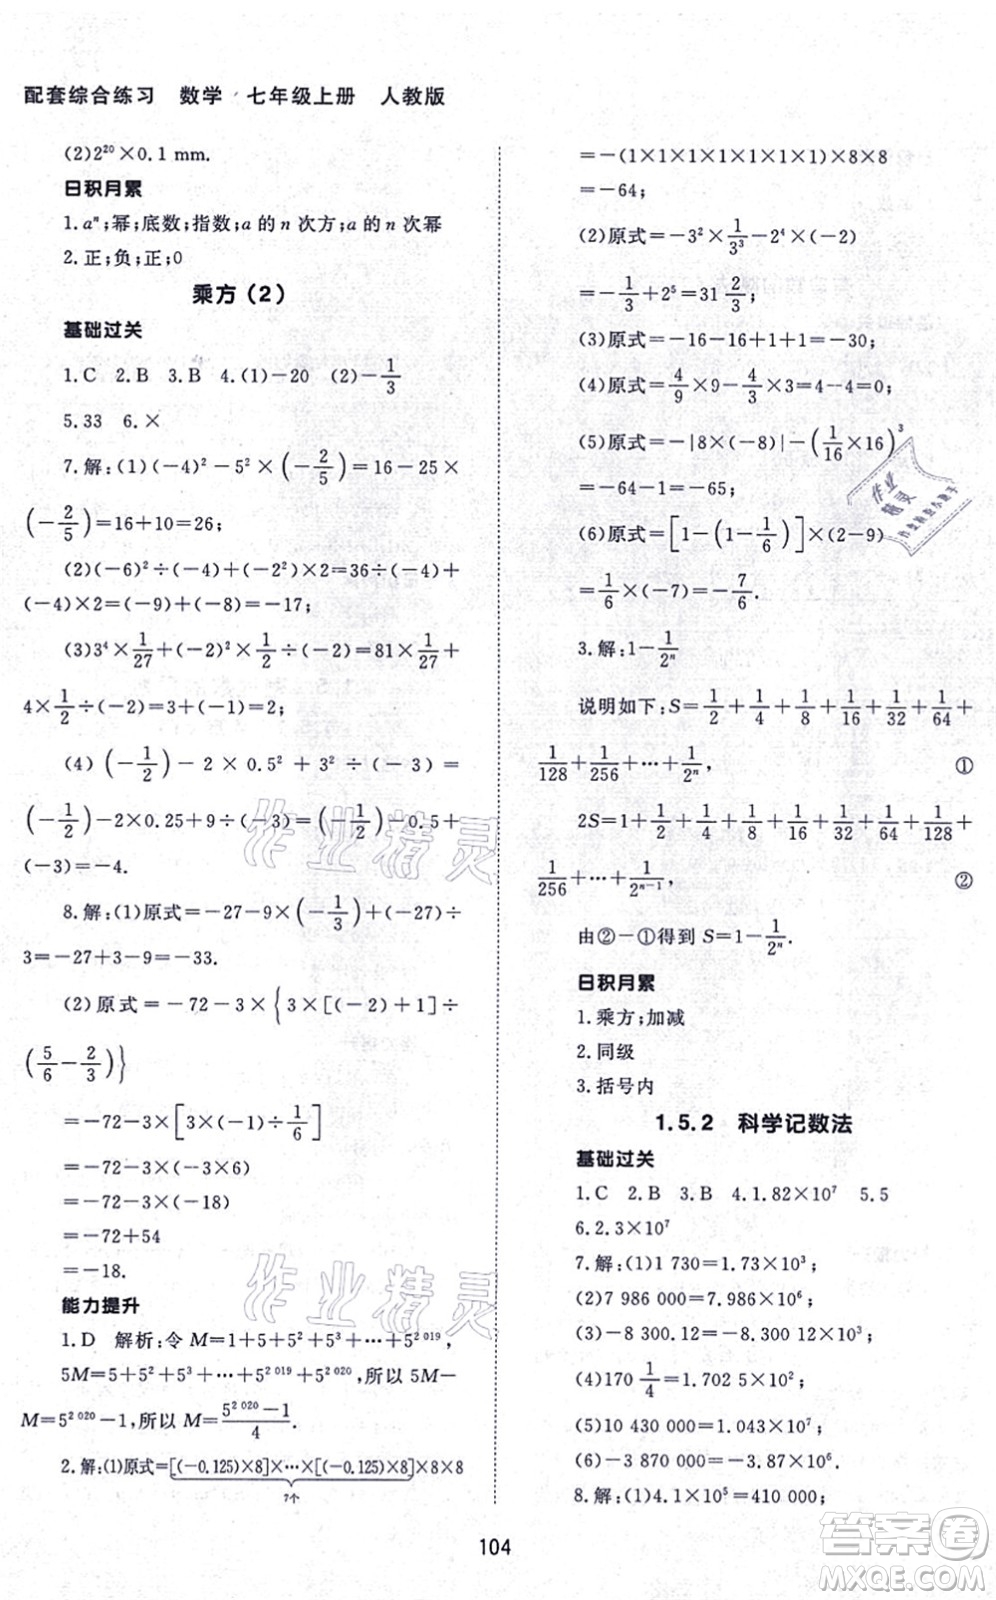 配套综合练习 数学·七年级上册 人教版
(2)2²⁰×0.1 mm.
日积月累
1.aⁿ;幂;底数;指数;a 的 n 次方;a 的 n 次幂
2.正;负;正;0
乘方(2)
基础过关
1.C 2.B 3.B 4.(1)-20 (2)-1/3
5.33 6.×
7.解:(1)(-4)²-5²×(-2/5)=16-25×
(-2/5)=16+10=26;
(2)(-6)²÷(-4)+(-2²)×2=36÷(-4)+
(-4)×2=(-9)+(-8)=-17;
(3)3⁴×1/27+(-2)²×1/2÷(-2)=81×1/27+
4×1/2÷(-2)=3+(-1)=2;
(4)(-1/2)-2×0.5²+3²÷(-3)=
(-1/2)-2×0.25+9÷(-3)=(-1/2)-0.5+
(-3)=-4.
8.解:(1)原式=-27-9×(-1/3)+(-27)÷
3=-27+3-9=-33.
(2)原式=-72-3×{3×[(-2)+1]÷
(5/6-2/3)}
=-72-3×[3×(-1)÷1/6]
=-72-3×(-3×6)
=-72-3×(-18)
=-72+54
=-18.
能力提升
1.D 解析:令 M=1+5+5²+5³+⋯+5²⁰¹⁹,
5M=5+5²+5³+⋯+5²⁰¹⁹+5²⁰²⁰,所以 5M-
M=5²⁰²⁰-1,所以 M=(5²⁰²⁰-1)/4.
2.解:(1)原式=[(-0.125)×8]×⋯×[(-0.125)×8]×8×8
7个
=-(1×1×1×1×1×1×1)×8×8
=-64;
(2)原式=-3²×1/3³-2⁴×(-2)
=-1/3+2⁵=31 2/3;
(3)原式=-16-16+1+1=-30;
(4)原式=4/9×9-4/3×3=4-4=0;
(5)原式=-|8×(-8)|-(1/16×16)³
=-64-1=-65;
(6)原式=[1-(1-1/6)]×(2-9)
=1/6×(-7)=-7/6.
3.解:1-1/2ⁿ
说明如下:S=1/2+1/4+1/8+1/16+1/32+1/64+
1/128+1/256+⋯+1/2ⁿ, ①
2S=1+1/2+1/4+1/8+1/16+1/32+1/64+1/128+
1/256+⋯+1/2ⁿ⁻¹, ②
由②-①得到 S=1-1/2ⁿ.
日积月累
1.乘方;加减
2.同级
3.括号内
1.5.2 科学记数法
基础过关
1.C 2.B 3.B 4.1.82×10⁷ 5.5
6.2.3×10⁷
7.解:(1)1 730=1.73×10³;
(2)7 986 000=7.986×10⁶;
(3)-8 300.4=-8.300 4×10³;
(4)170 1/4=1.702 5×10²;
(5)10 430 000=1.043×10⁷;
(6)-3 870 000=-3.87×10⁶.
8.解:(1)4.1×10⁵=410 000;
104
作业精灵
作业精灵
作业精灵
答案卷
MXQE.COM